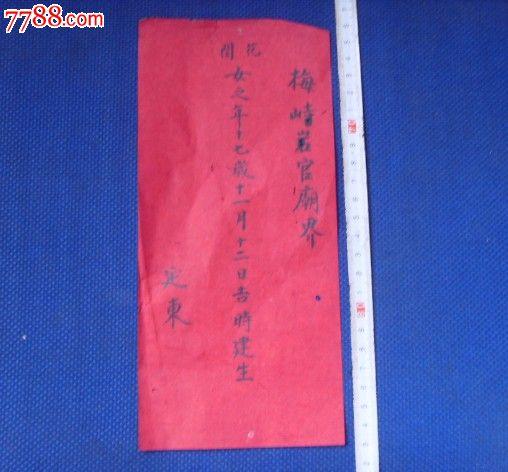 7788.com
梅崎岩官廟界
花間
女之年十七歲十一月十二日吉時建生
定東